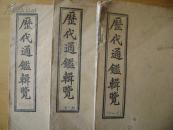 歷代通鑑輯覽
歷代通鑑輯覽
歷代通鑑輯覽